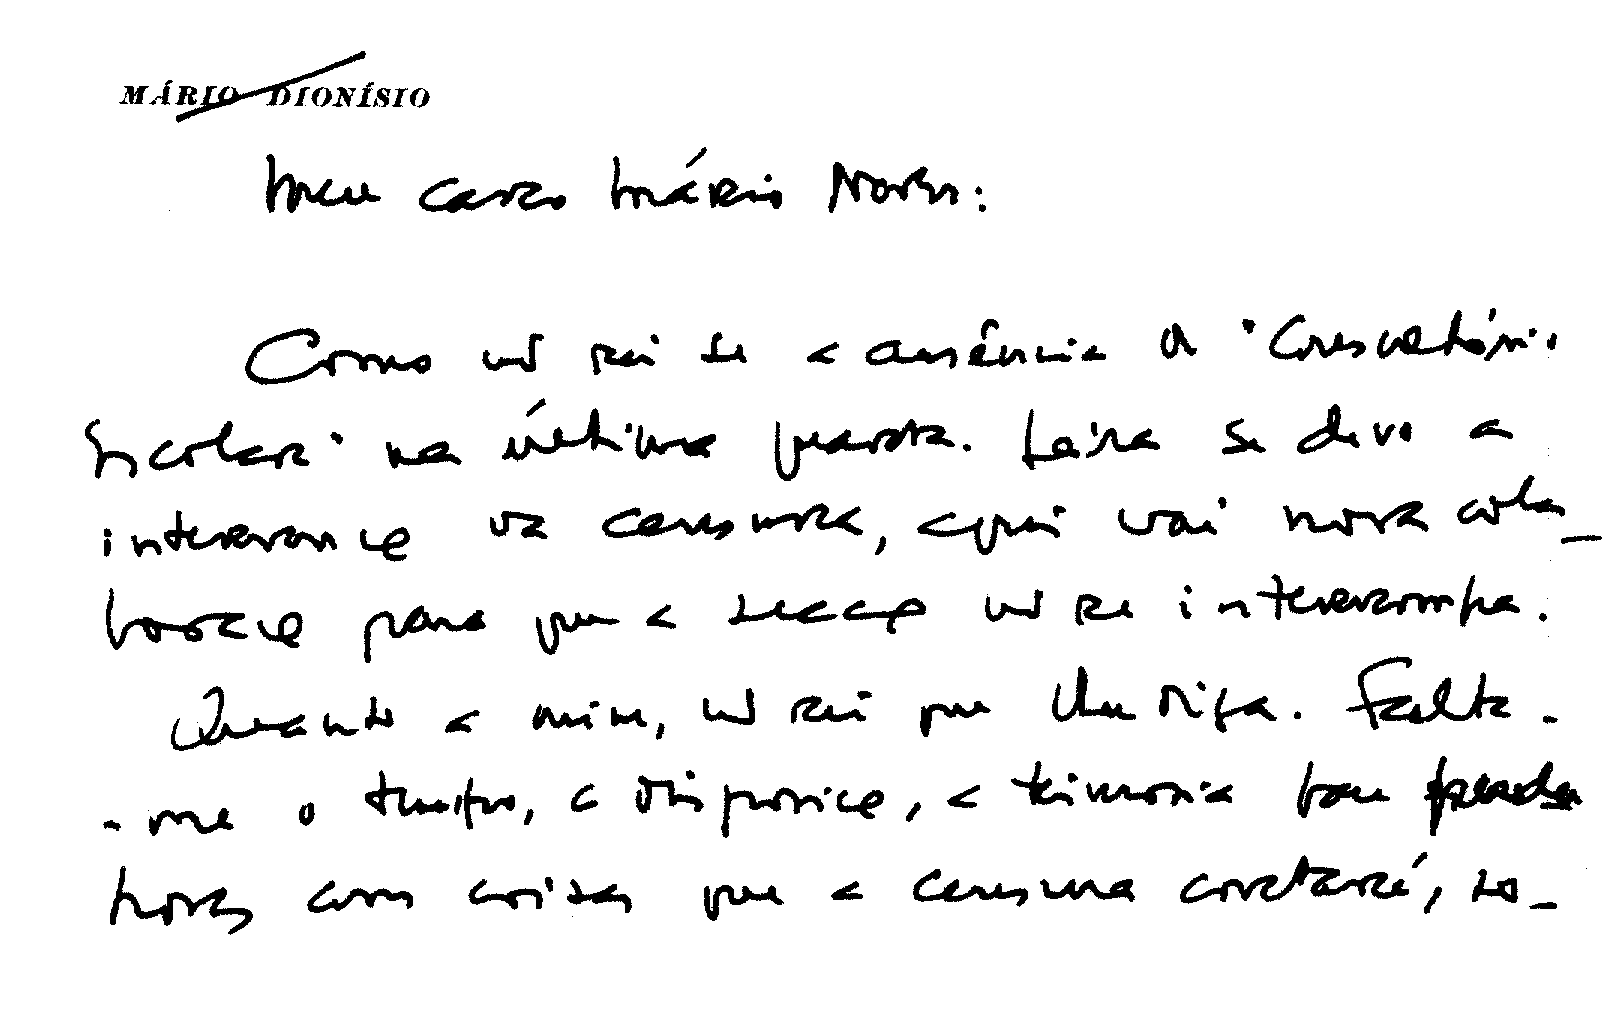 MÁRIO DIONÍSIO
Meu caro Mário Neves:
Como não sei se a ausência do "Consultório
Escolar" na última quarta-feira se deve a
interrupção da censura, aqui vai nova cola-
boração para que a secção não se interrompa.
Quanto a mim, não sei que lhe diga. Falta-
-me o tempo, a disposição, a teimosia para perder
horas com coisas que a censura cortará, so-